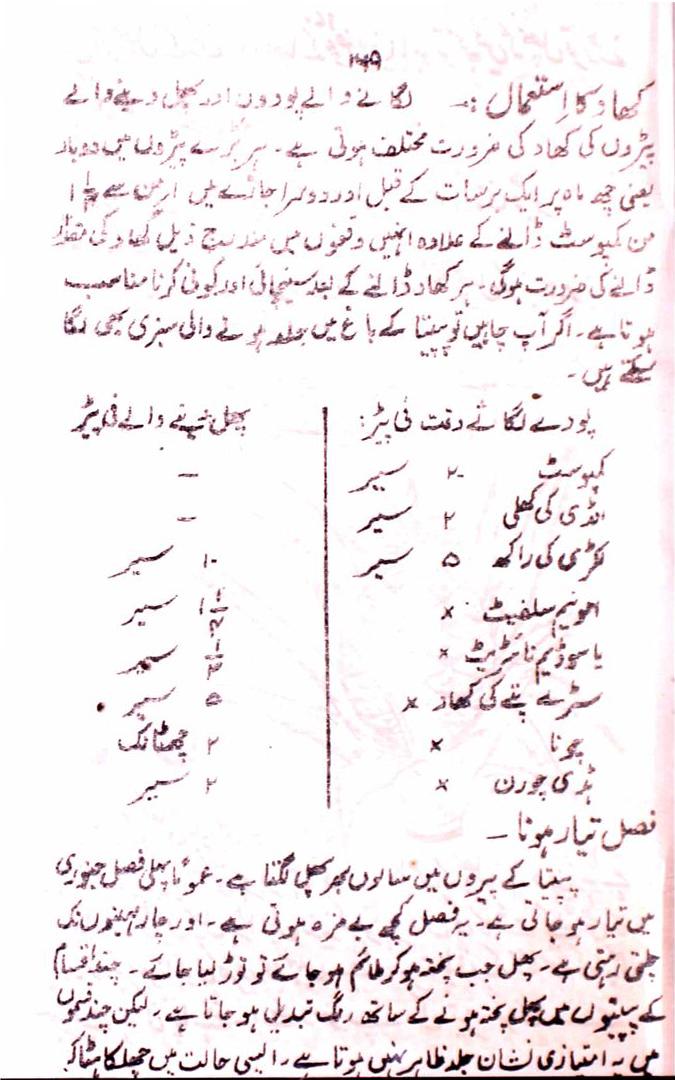 ۱۴۹
کھاد کا استعمال :- لگانے والے پودوں اور پھل دینے والے
پیڑوں کی کھاد کی ضرورت مختلف ہوتی ہے۔ ہر بڑے پیڑوں میں دوبار
یعنی چھ ماہ پر ایک برسات کے قبل اور دوسرا جاڑے میں ۱ رمن سے ۱
من کمپوسٹ ڈالنے کے علاوہ انہیں وقتوں میں مندرجہ ذیل کھاد کی مقدار
ڈالنے کی ضرورت ہوگی۔ ہر کھاد ڈالنے کے بعد سینچائی اور کوڑنی کرنا مناسب
ہوتا ہے۔ اگر آپ چاہیں تو پپیتا کے باغ میں جلد ہونے والی سبزی بھی لگا
سکتے ہیں۔
پودے لگاتے وقت فی پیڑ: پھل دینے والے فی پیڑ
کمپوسٹ ۲۰ سیر —
انڈی کی کھلی ۲ سیر —
لکڑی کی راکھ ۵ سیر ۱۰ سیر
امونیم سلفیٹ × سیر
یا سوڈیم نائٹریٹ × سیر
سڑے پتے کی کھاد × ۵ سیر
چونا × ۲ چھٹانک
ہڈی چورن × ۲ سیر
فصل تیار ہونا —
پپیتا کے پیڑوں میں سالوں بھر پھل لگتا ہے۔ عموماً پہلی فصل جنوری
میں تیار ہو جاتی ہے۔ یہ فصل کچھ بے مزہ ہوتی ہے۔ اور چار مہینوں تک
چلتی رہتی ہے۔ پھل جب پختہ ہو کر ملائم ہو جائے تو توڑ لیا جائے۔ چند اقسام
کے پپیتوں میں پھل پختہ ہونے کے ساتھ رنگ تبدیل ہو جاتا ہے۔ لیکن چند قسموں
میں یہ امتیازی نشان جلد ظاہر نہیں ہوتا ہے۔ ایسی حالت میں چھلکا ہٹا کر